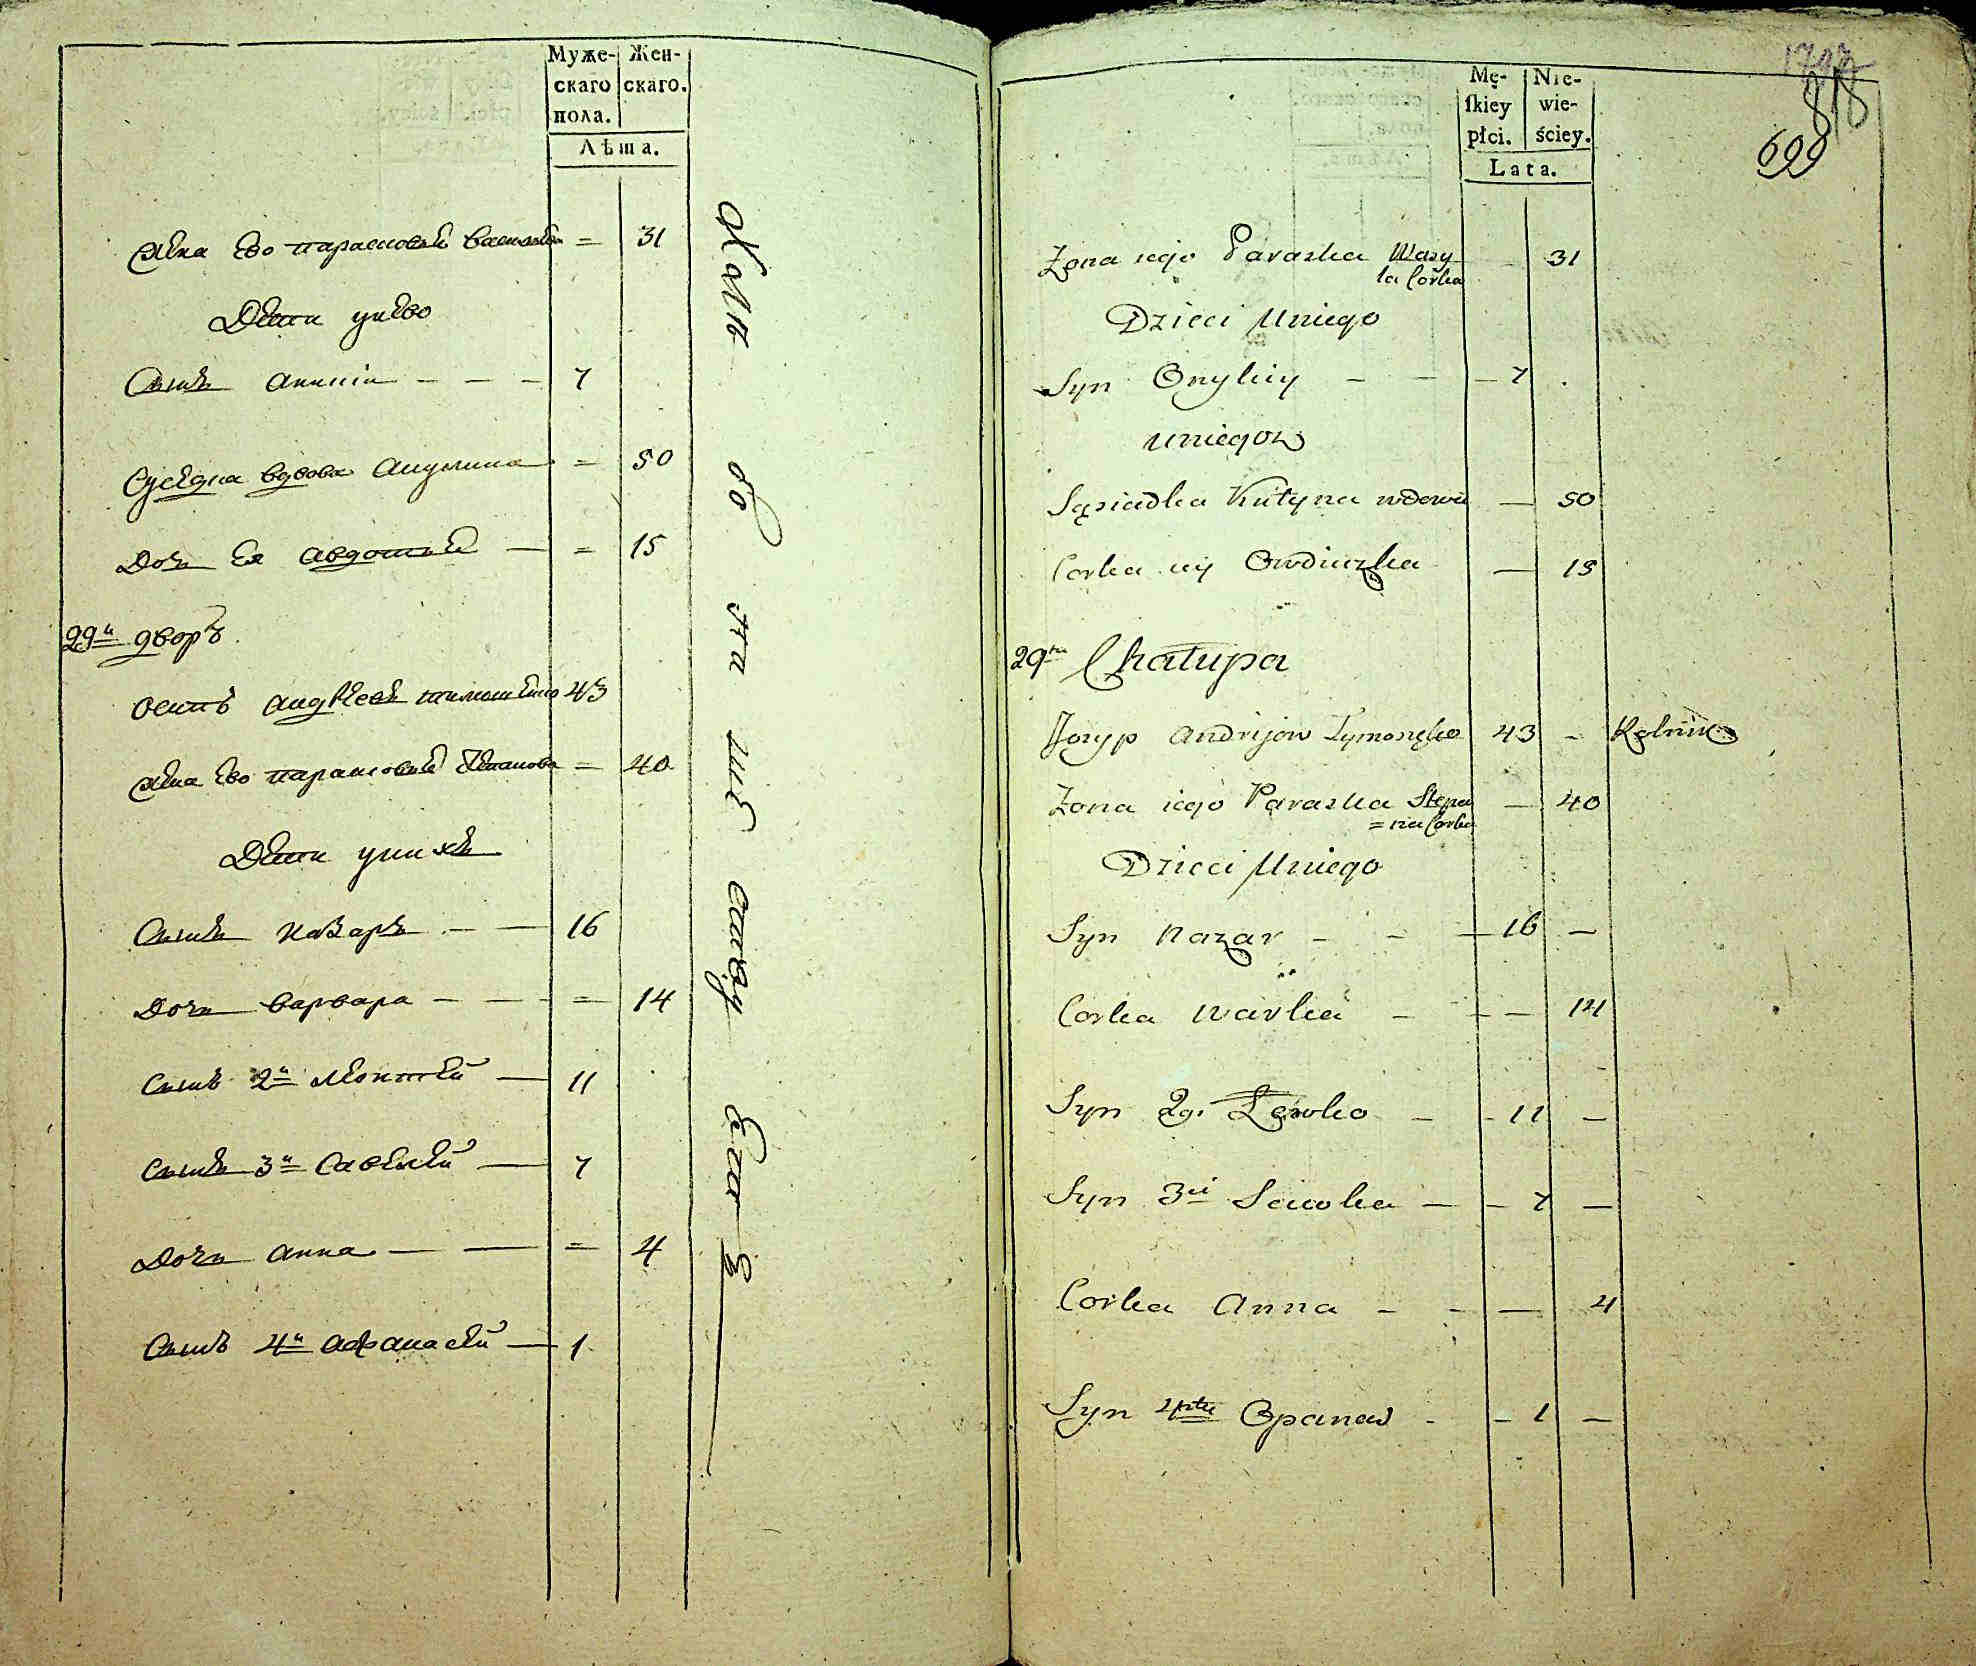 Муже-
скаго
пола.
Жен-
скаго.
Лѣта.
Жена ево парасковѣй васильева = 31
Дети унево
Сынъ Аникіи - - - 7
Суседка вдова Акулина = 50
Дочь ея авдотьей — = 15
29й дворъ
Осипъ андреевъ тимошенко 43
Жена ево парасковѣй Степанова = 40
Дети унихъ
Сынъ Назаръ - — 16
Дочь варвара - - = 14
Сынъ 2й Леонтей — 11
Сынъ 3й Савелей — 7
Дочь анна — — = 4
Сынъ 4й афанасей — 1
Mę-
ſkiey
płci.
Nie-
wie-
ściey.
Lata.
818
699
Zona iego Paraska Wasy
la Corka - 31
Dzieci Uniego
Syn Onykiy - - - 7
Uniegoz
Sąsiadka Kutyna wdowa — 50
Corka iey Owdiuszka — 15
29ta Chałupa
Jozyp Andrijow Tymoszęko 43 - Rolnik
Zona iego Paraska Stepa
=na Corka — 40
Dzieci Uniego
Syn Nazar - - — 16 —
Corka Warka - - — 14
Syn 2gi Lewko - - 11 —
Syn 3ci Sawka — - 7 —
Corka Anna - - — 4
Syn 4rty Opanas - - 1 —